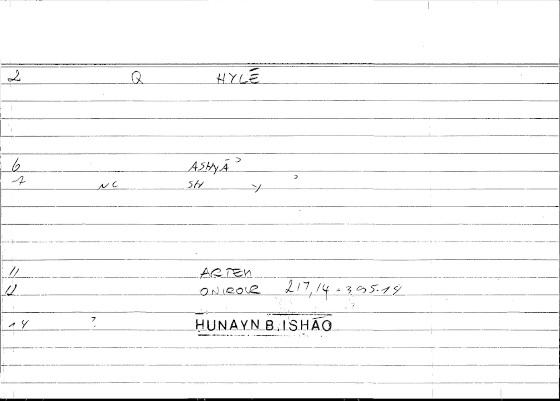 2 Q HYLĒ
6 ASHYĀʾ
7 NC SH Y ʾ
11 ARTEM
12 ONIROCR 217,14-395.14
14 ? HUNAYN B. ISHĀQ